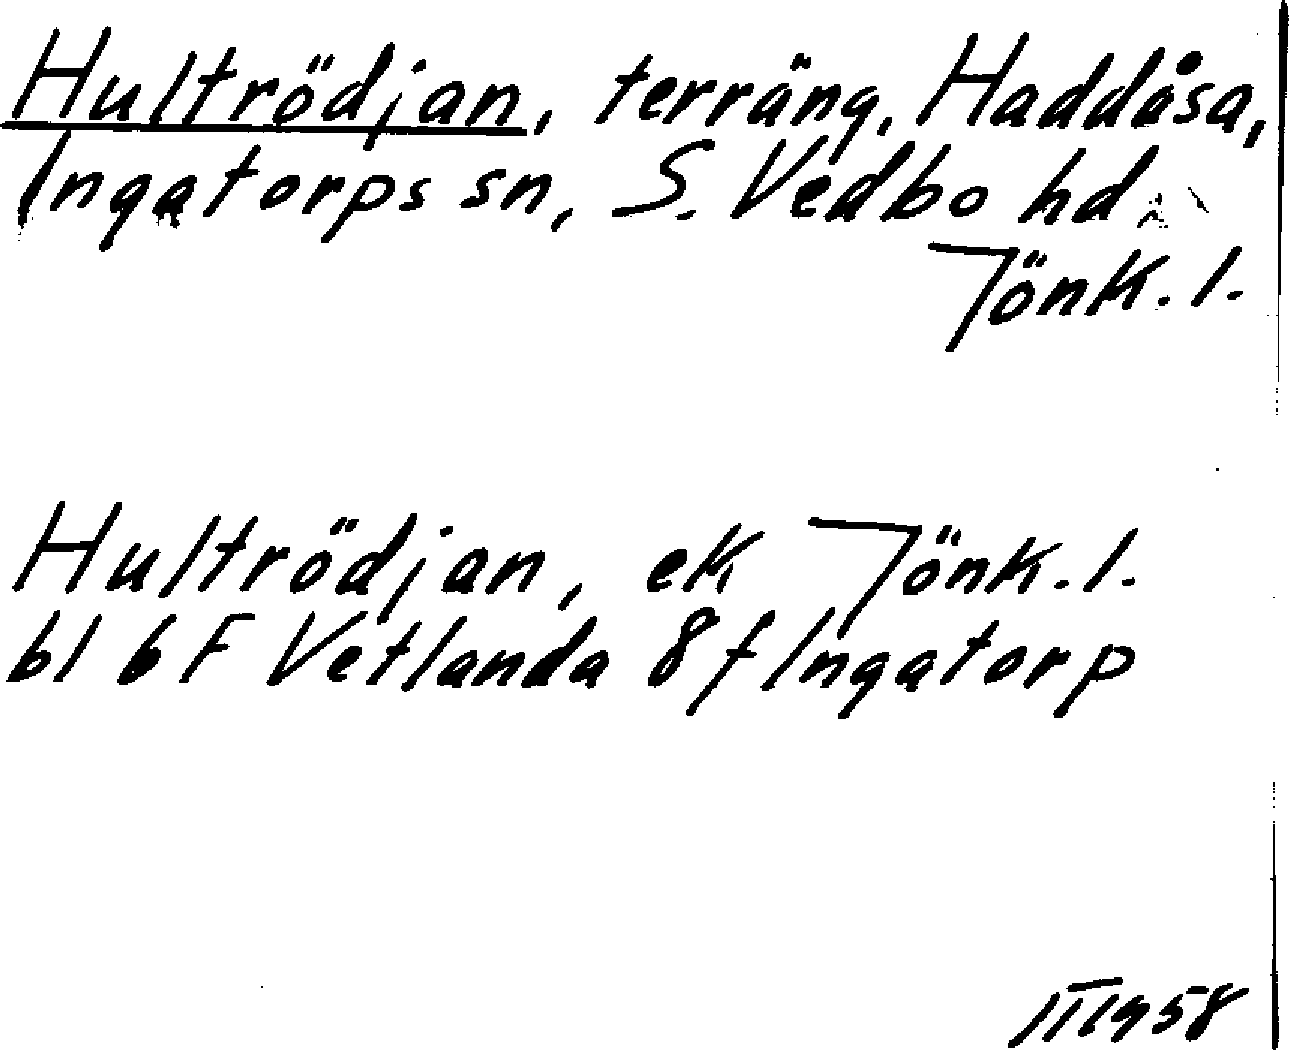 Hultrödjan, terräng, Haddåsa,
Ingatorps sn, S. Vedbo hd
Jönk. l.
Hultrödjan, ek Jönk. l.
bl 6 F Vetlanda 8 f Ingatorp
III 1958